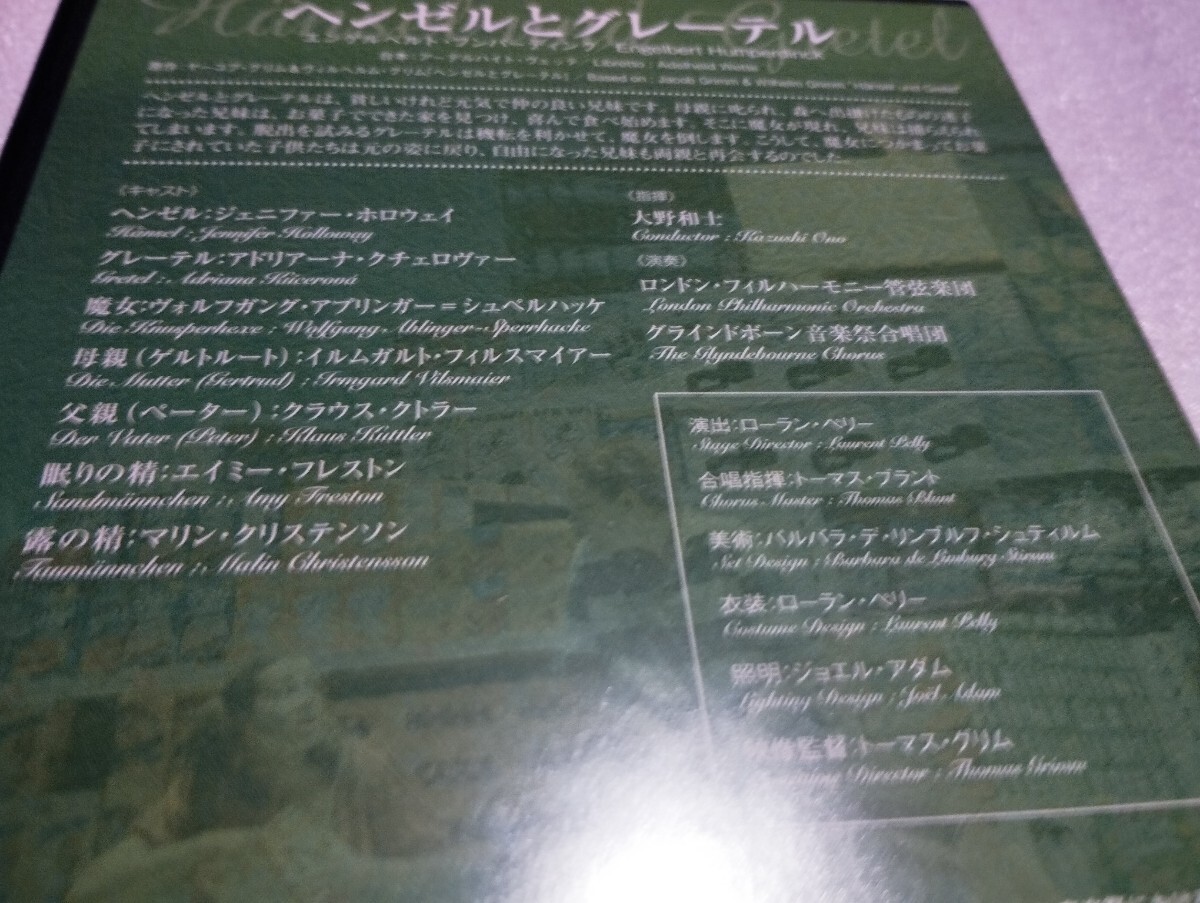 ヘンゼルとグレーテル
エンゲルベルト・フンパーディンク／Engelbert Humperdinck
台本：アーデルハイト・ヴェッテ／Libretto : Adelheid Wette
原作：ヤーコプ・グリム&ヴィルヘルム・グリム「ヘンゼルとグレーテル」／Based on : Jacob Grimm & Wilhelm Grimm "Hänsel und Gretel"
ヘンゼルとグレーテルは、貧しいけれど元気で仲の良い兄妹です。母親に叱られ、森へ出掛けたものの迷子
になった兄妹は、お菓子でできた家を見つけ、喜んで食べ始めます。そこに魔女が現れ、兄妹は捕らえられ
てしまいます。脱出を試みるグレーテルは機転を利かせて、魔女を倒します。こうして、魔女につかまってお菓
子にされていた子供たちは元の姿に戻り、自由になった兄妹も両親と再会するのでした。
《キャスト》
ヘンゼル：ジェニファー・ホロウェイ
Hänsel : Jennifer Holloway
グレーテル：アドリアーナ・クチェロヴァー
Gretel : Adriana Kučerová
魔女：ヴォルフガング・アブリンガー＝シュペルハッケ
Die Knusperhexe : Wolfgang Ablinger-Sperrhacke
母親（ゲルトルート）：イルムガルト・フィルスマイアー
Die Mutter (Gertrud) : Irmgard Vilsmaier
父親（ペーター）：クラウス・クトラー
Der Vater (Peter) : Klaus Kuttler
眠りの精：エイミー・フレストン
Sandmännchen : Amy Freston
露の精：マリン・クリステンソン
Taumännchen : Malin Christensson
《指揮》
大野和士
Conductor : Kazushi Ono
《演奏》
ロンドン・フィルハーモニー管弦楽団
London Philharmonic Orchestra
グラインドボーン音楽祭合唱団
The Glyndebourne Chorus
演出：ローラン・ペリー
Stage Director : Laurent Pelly
合唱指揮：トーマス・ブラント
Chorus Master : Thomas Blunt
美術：バルバラ・デ・リンブルフ・シュティルム
Set Design : Barbara de Limburg Stirum
衣装：ローラン・ペリー
Costume Design : Laurent Pelly
照明：ジョエル・アダム
Lighting Design : Joël Adam
監督：トーマス・グリム
Director : Thomas Grimm